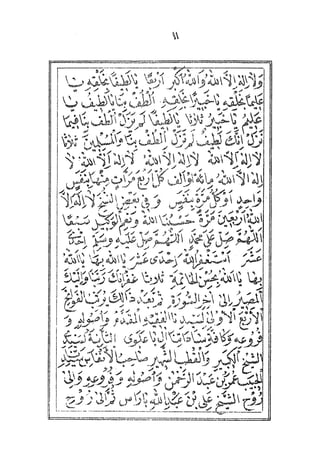 ١١
ولا إله إلا الله والله أكبر أربعا يا لطيفا بخلقه يا
عليما بخلقه يا خبيرا بخلقه الطف بنا يا لطيف يا
عليم يا خبير ثلاثا يا لطيفا لم تزل الطف بنا فيما
نزل إنك لطيف لم تزل الطف بنا والمسلمين ثلاثا
لا إله إلا الله لا إله إلا الله لا إله إلا الله لا
إله إلا الله مائة أو ألف كل أربع مرات منها بنفس
واحد أو كل مرة بنفس و في بعض النسخ لا إله إلا
الله أربعين مرة حسبنا الله ونعم الوكيل سبعا
اللهم صل على محمد اللهم صل عليه وسلم إحدى
عشر أستغفر الله إحدى عشر يا الله بها يا الله
بها يا الله بحسن الخاتمة ثلاثا غفرانك ربنا وإليك
المصير إلى آخر السورة ثم بعد ذلك يرتب الفواتح
الأربع الأولى لسيدنا الفقيه المقدم وأصوله و
فروعه وكافة ساداتنا آل باعلوي الثانية لسيدنا
الشيخ الكبير والقطب الشهير صاحب الأنفاس سيدنا
الحبيب عمر بن عبد الرحمن وأصوله و فروعه وإلى
روح الشيخ علي بن عبد الله باراس ثم إلى روح